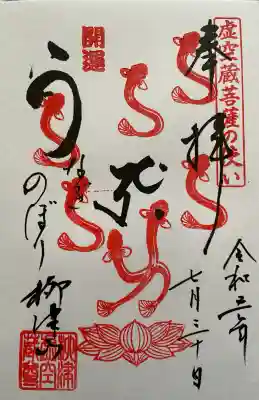 虚空蔵菩薩の使い
奉拝
令和三年
七月三十日
開運
うなぎ
のぼり
柳津山